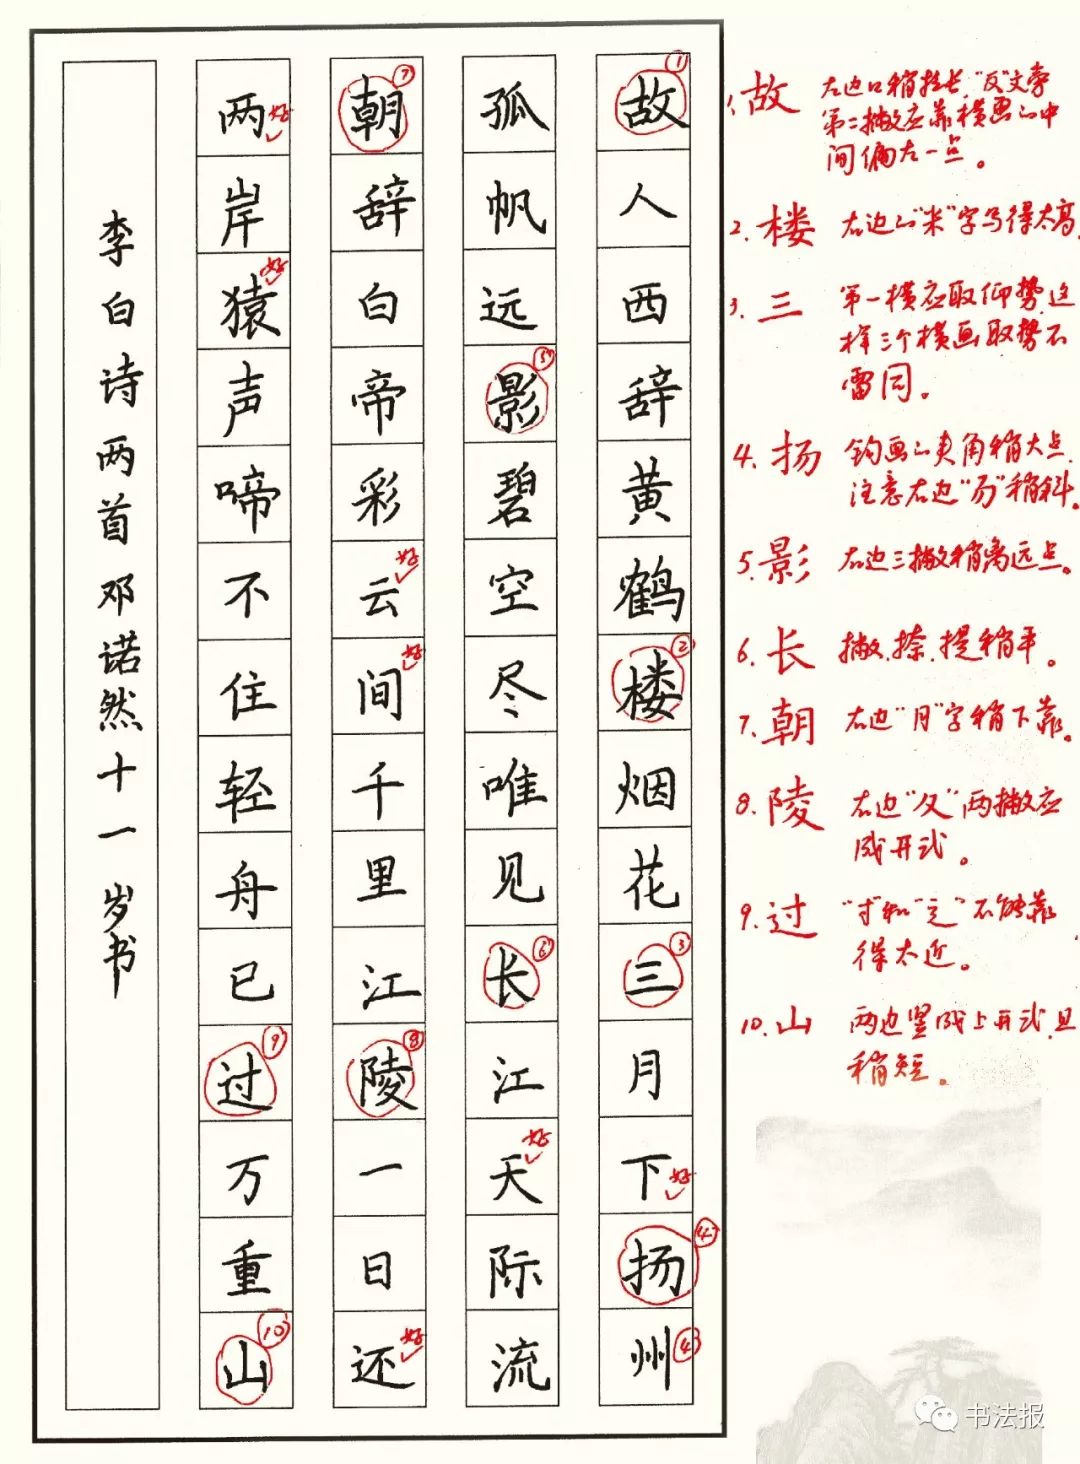 故人西辞黄鹤楼烟花三月下扬州
孤帆远影碧空尽唯见长江天际流
朝辞白帝彩云间千里江陵一日还
两岸猿声啼不住轻舟已过万重山
李白诗两首邓诺然十一岁书
①
②
③
④
④
⑤
好
⑥
⑦
好
好
⑧
好
好
好
⑨
⑩
好
1.故 左边口稍拉长,“反”文旁
第二撇应靠横画的中
间偏左一点。
2.楼 右边的“米”字写得太高.
3.三 第一横应取仰势,这
样三个横画取势不
雷同。
4.扬 钩画的夹角稍大点.
注意右边“㐅”稍斜。
5.影 右边三撇稍离远点。
6.长 撇.捺.提稍平。
7.朝 右边“月”字稍下靠。
8.陵 右边“夂”两撇应
成开式。
9.过 “寸”和“辶”不能靠
得太近。
10.山 两边竖成上开式,且
稍短。
书法报